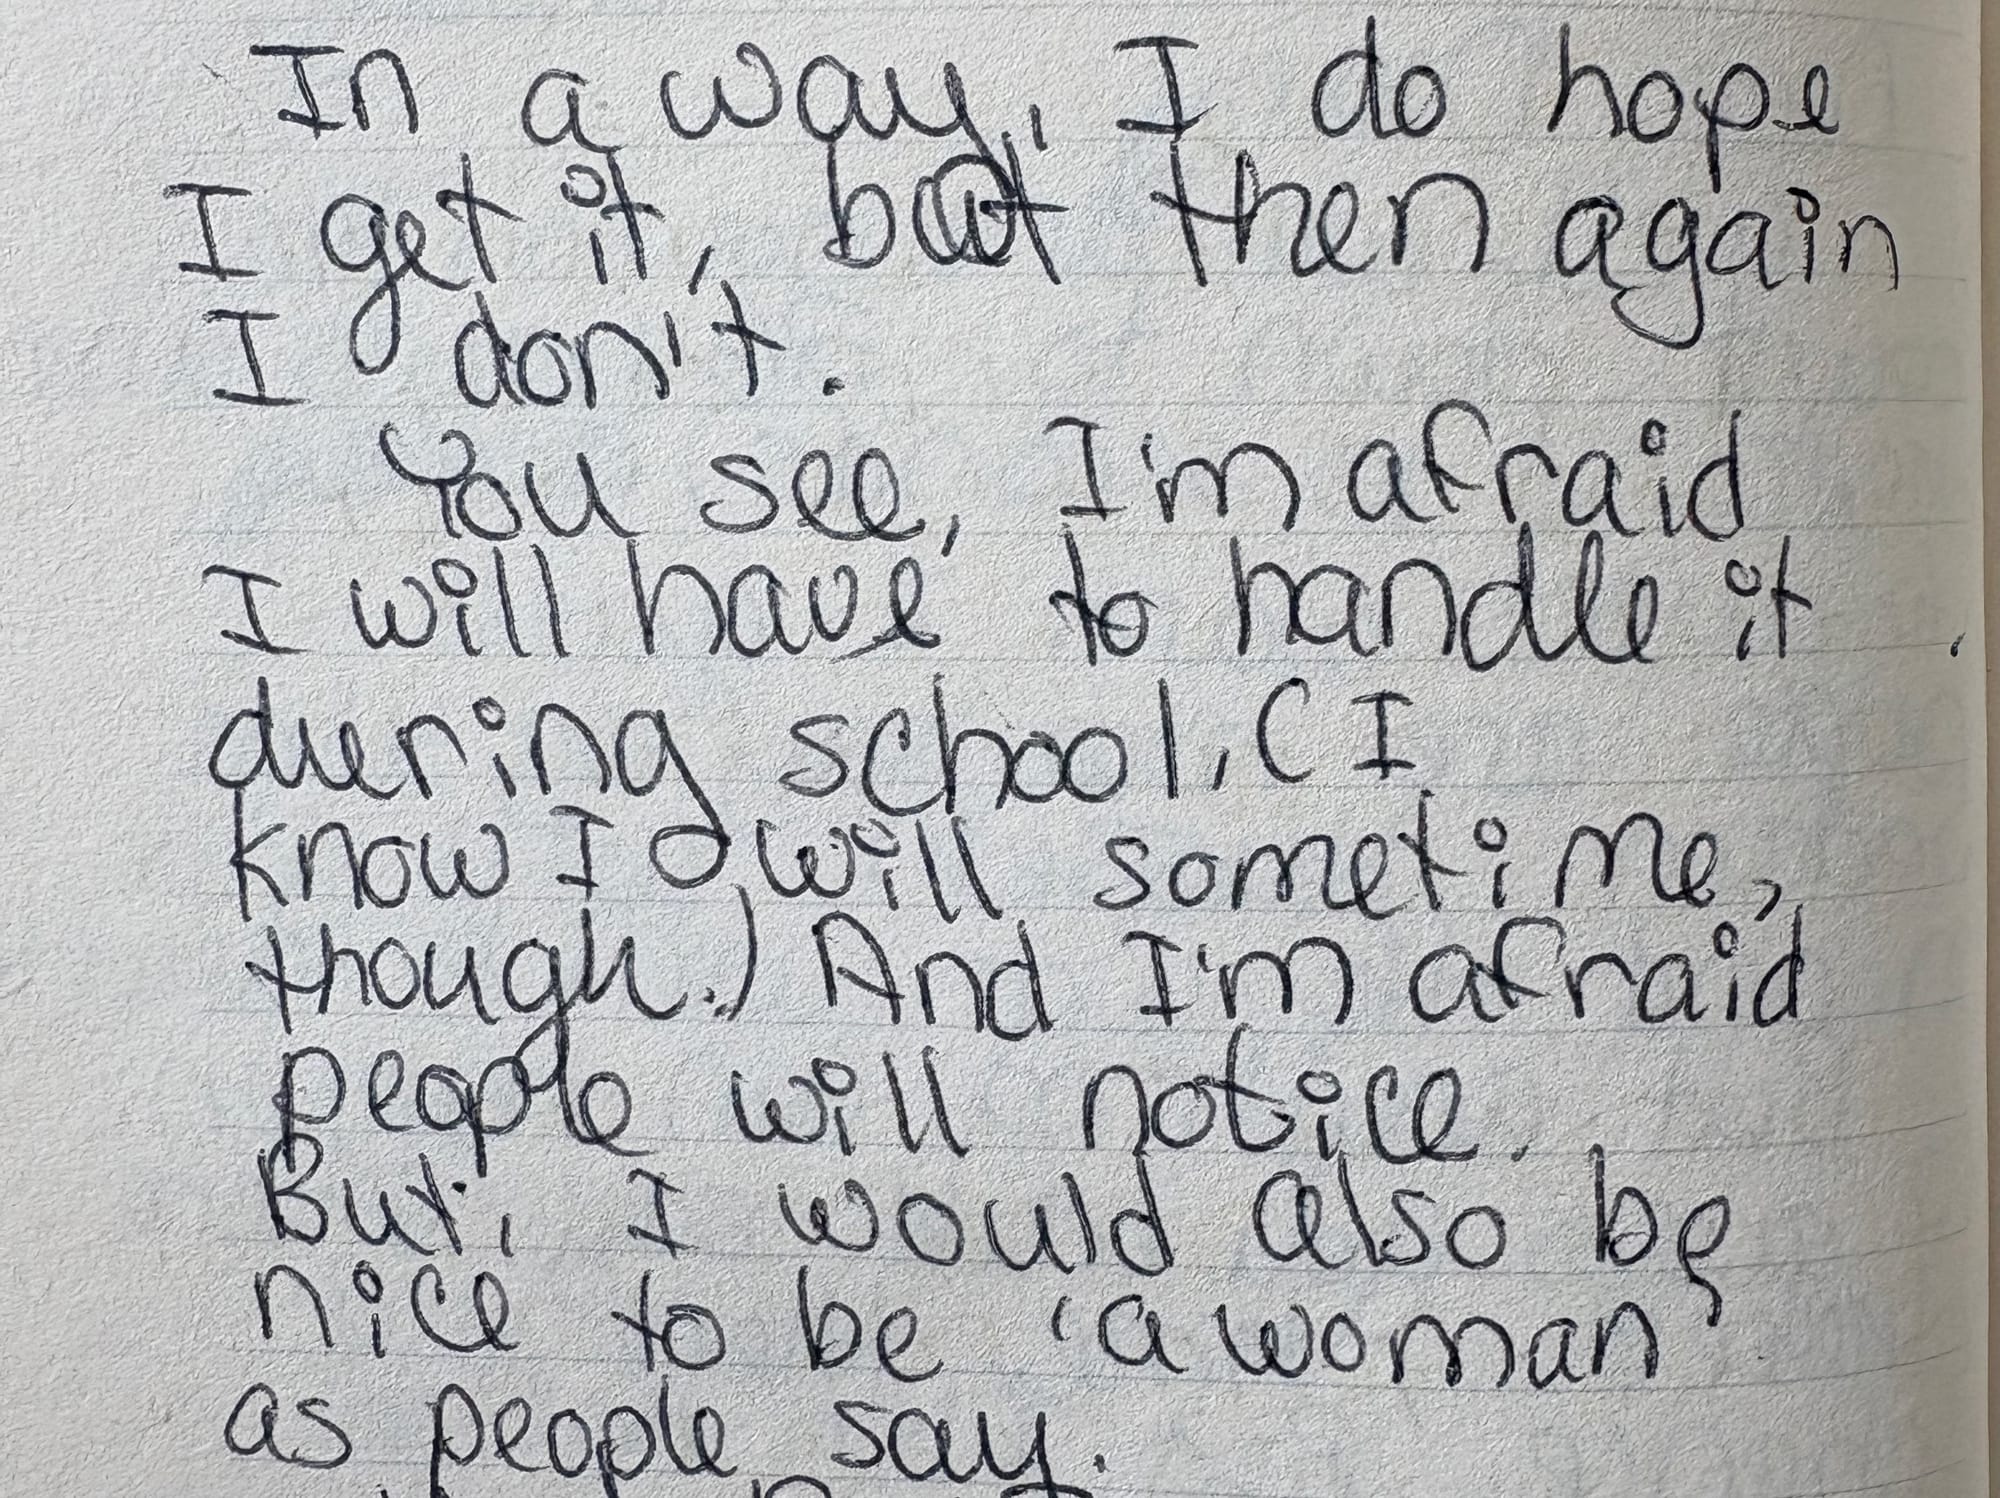 In a way, I do hope
I get it, but then again
I don't.
You see, I'm afraid
I will have to handle it
during school, (I
know I will sometime,
though.) And I'm afraid
people will notice.
But, I would also be
nice to be 'a woman'
as people say.